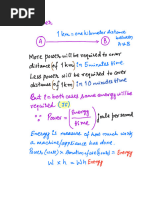 1 km = one kilometer distance
between
A to B
A
B
More power will be required to cover
distance (of 1 km) in 5 minutes time
Less power will be required to cover
distance (of 1 km) in 10 minutes time
But in both cases same energy will be
required. (JE)
∵ Power = Energy / time joule per second
Energy is measure of how much work
a machine/appliance has done.
W x h = Wh Energy